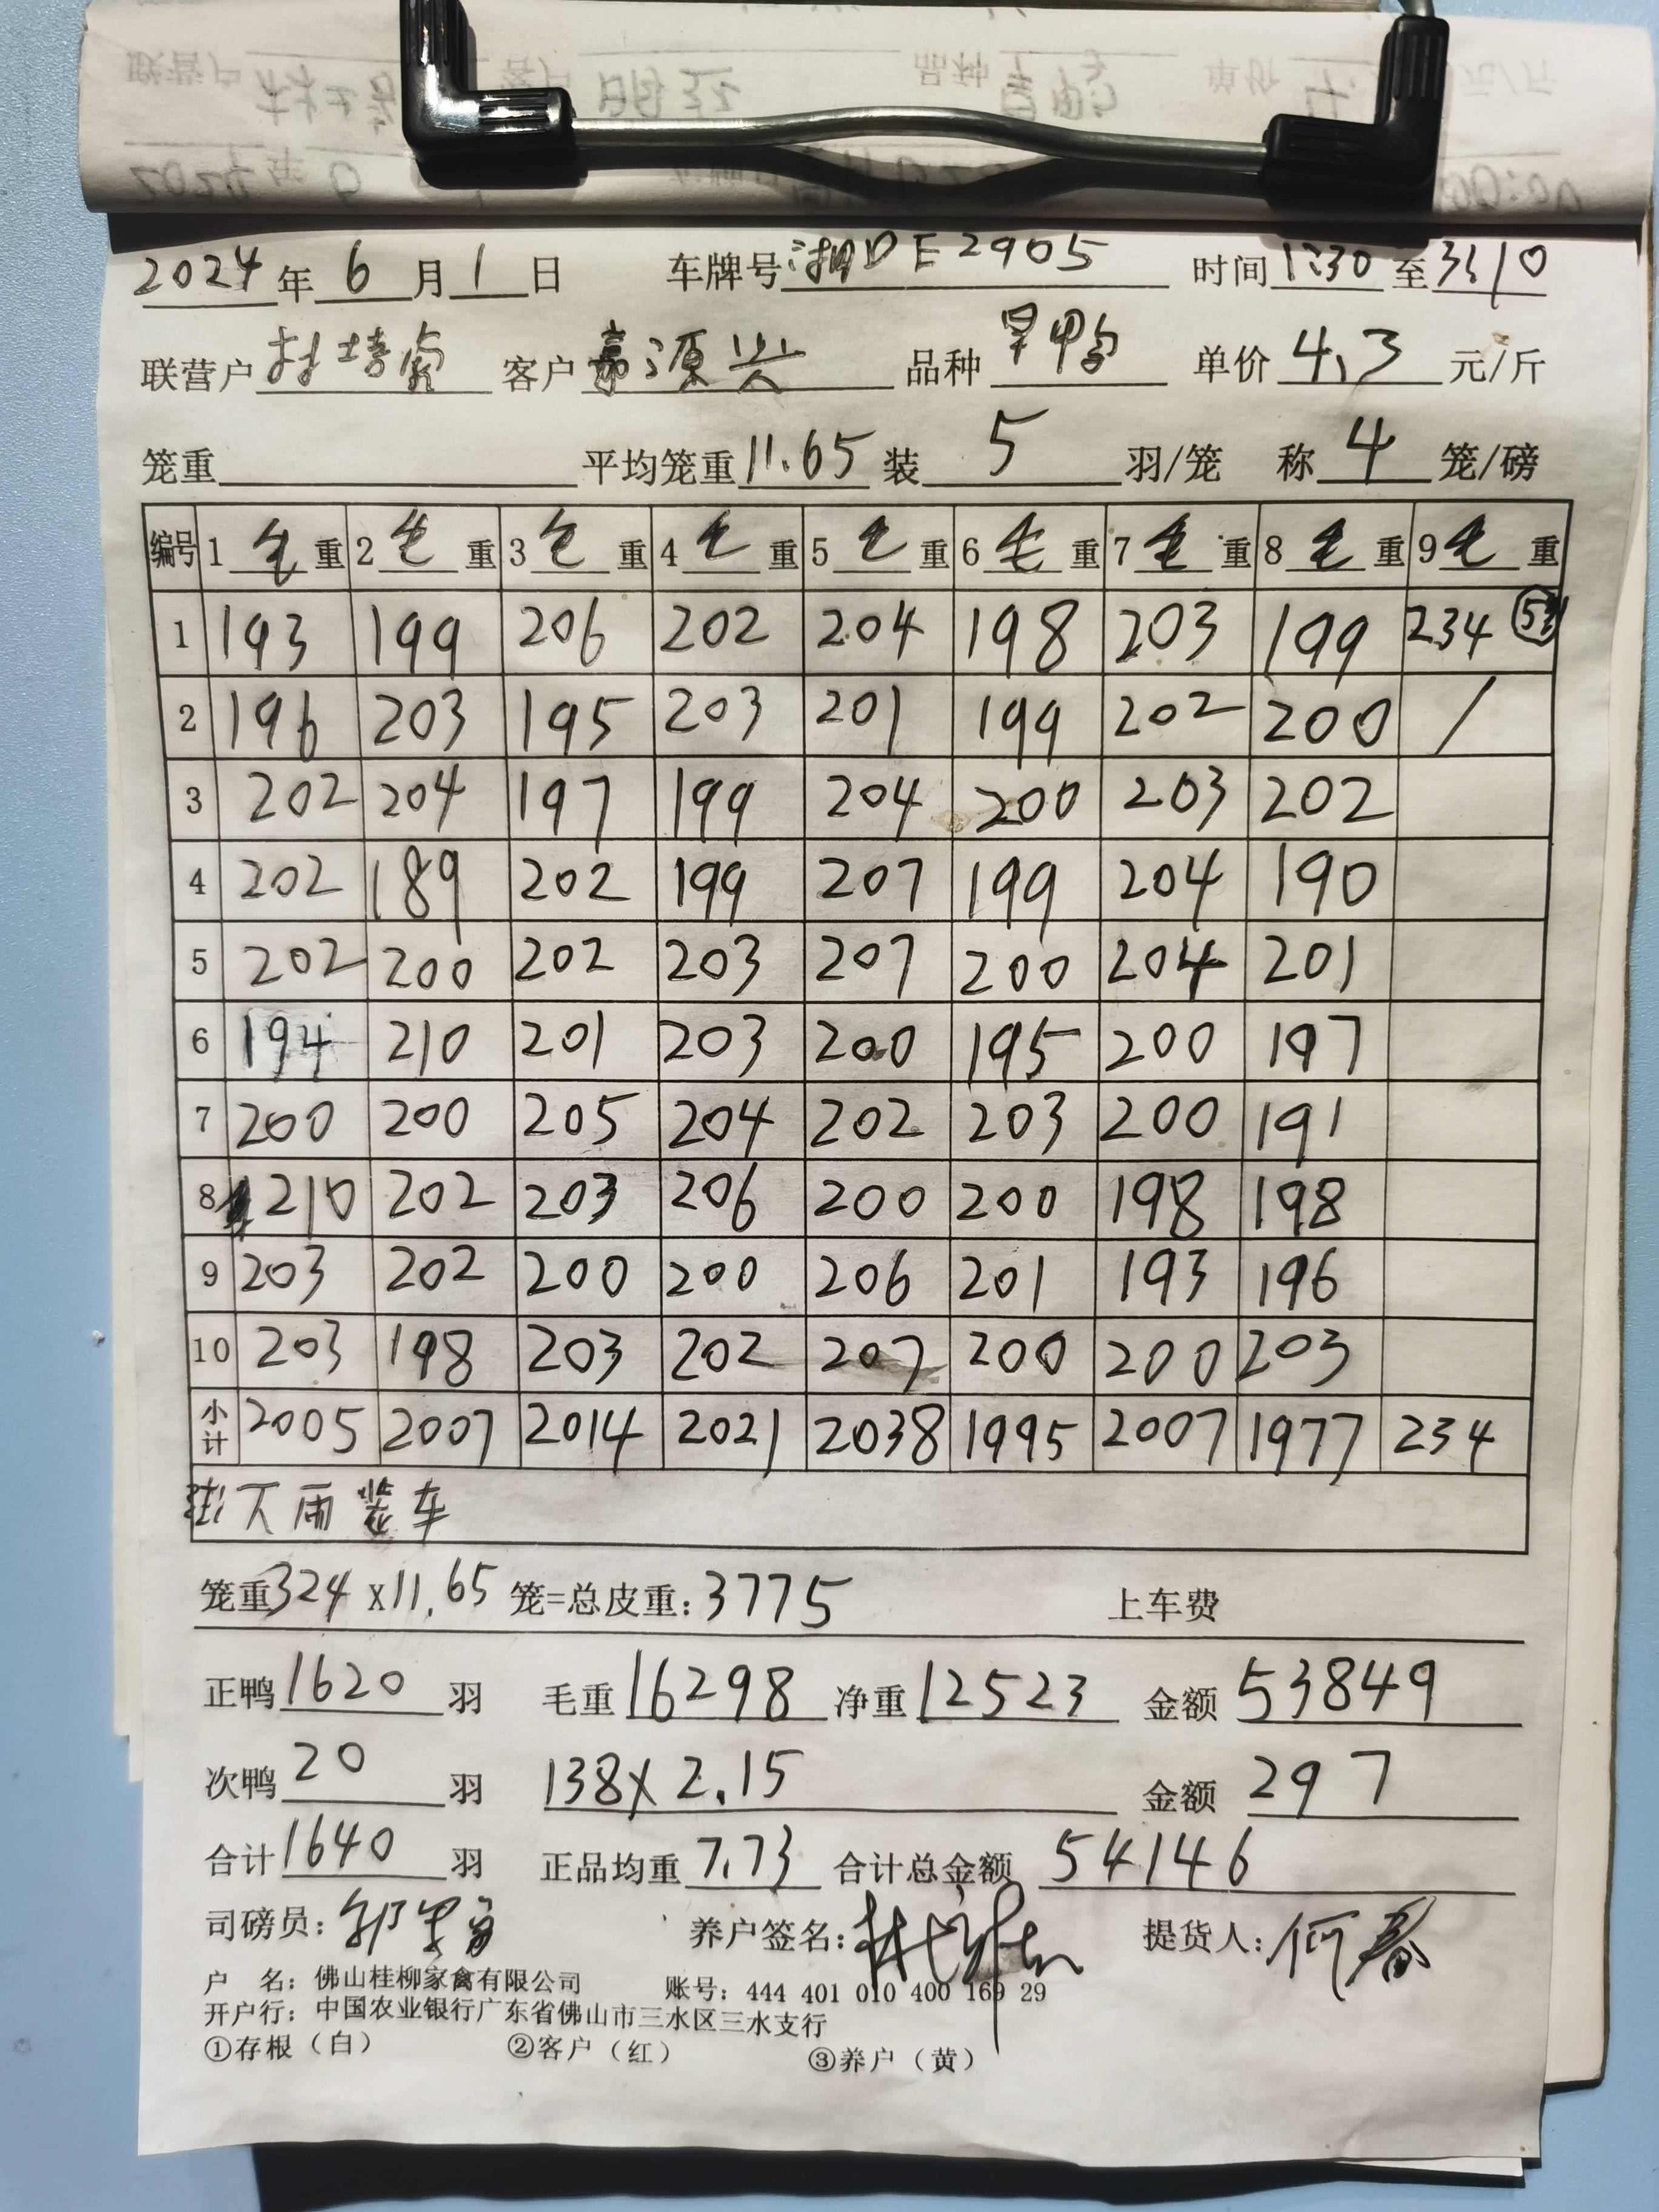 2024年6月1日 车牌号:湘DE2905 时间1:30至3:10
联营户 林培 客户 嘉源兴 品种 旱鸭 单价 4.3 元/斤
笼重 平均笼重 11.65 装 5 羽/笼 称 4 笼/磅
编号 1 毛 重 2 毛 重 3 毛 重 4 毛 重 5 毛 重 6 毛 重 7 毛 重 8 毛 重 9 毛 重
1 193 199 206 202 204 198 203 199 234
2 196 203 195 203 201 199 202 200 /
3 202 204 197 199 204 200 203 202
4 202 189 202 199 207 199 204 190
5 202 200 202 203 207 200 204 201
6 194 210 201 203 200 195 200 197
7 200 200 205 204 202 203 200 191
8 210 202 203 206 200 200 198 198
9 203 202 200 200 206 201 193 196
10 203 198 203 202 207 200 200 203
小计 2005 2007 2014 2021 2038 1995 2007 1977 234
下雨装车
笼重324 x11.65 笼=总皮重:3775 上车费
正鸭1620羽 毛重16298 净重12523 金额53849
次鸭20羽 138x2.15 金额297
合计1640羽 正品均重7.73 合计总金额54146
司磅员: 养户签名: 提货人:何春
户 名: 佛山桂柳家禽有限公司 账号: 444 401 010 400 169 29
开户行: 中国农业银行广东省佛山市三水区三水支行
①存根（白） ②客户（红） ③养户（黄）